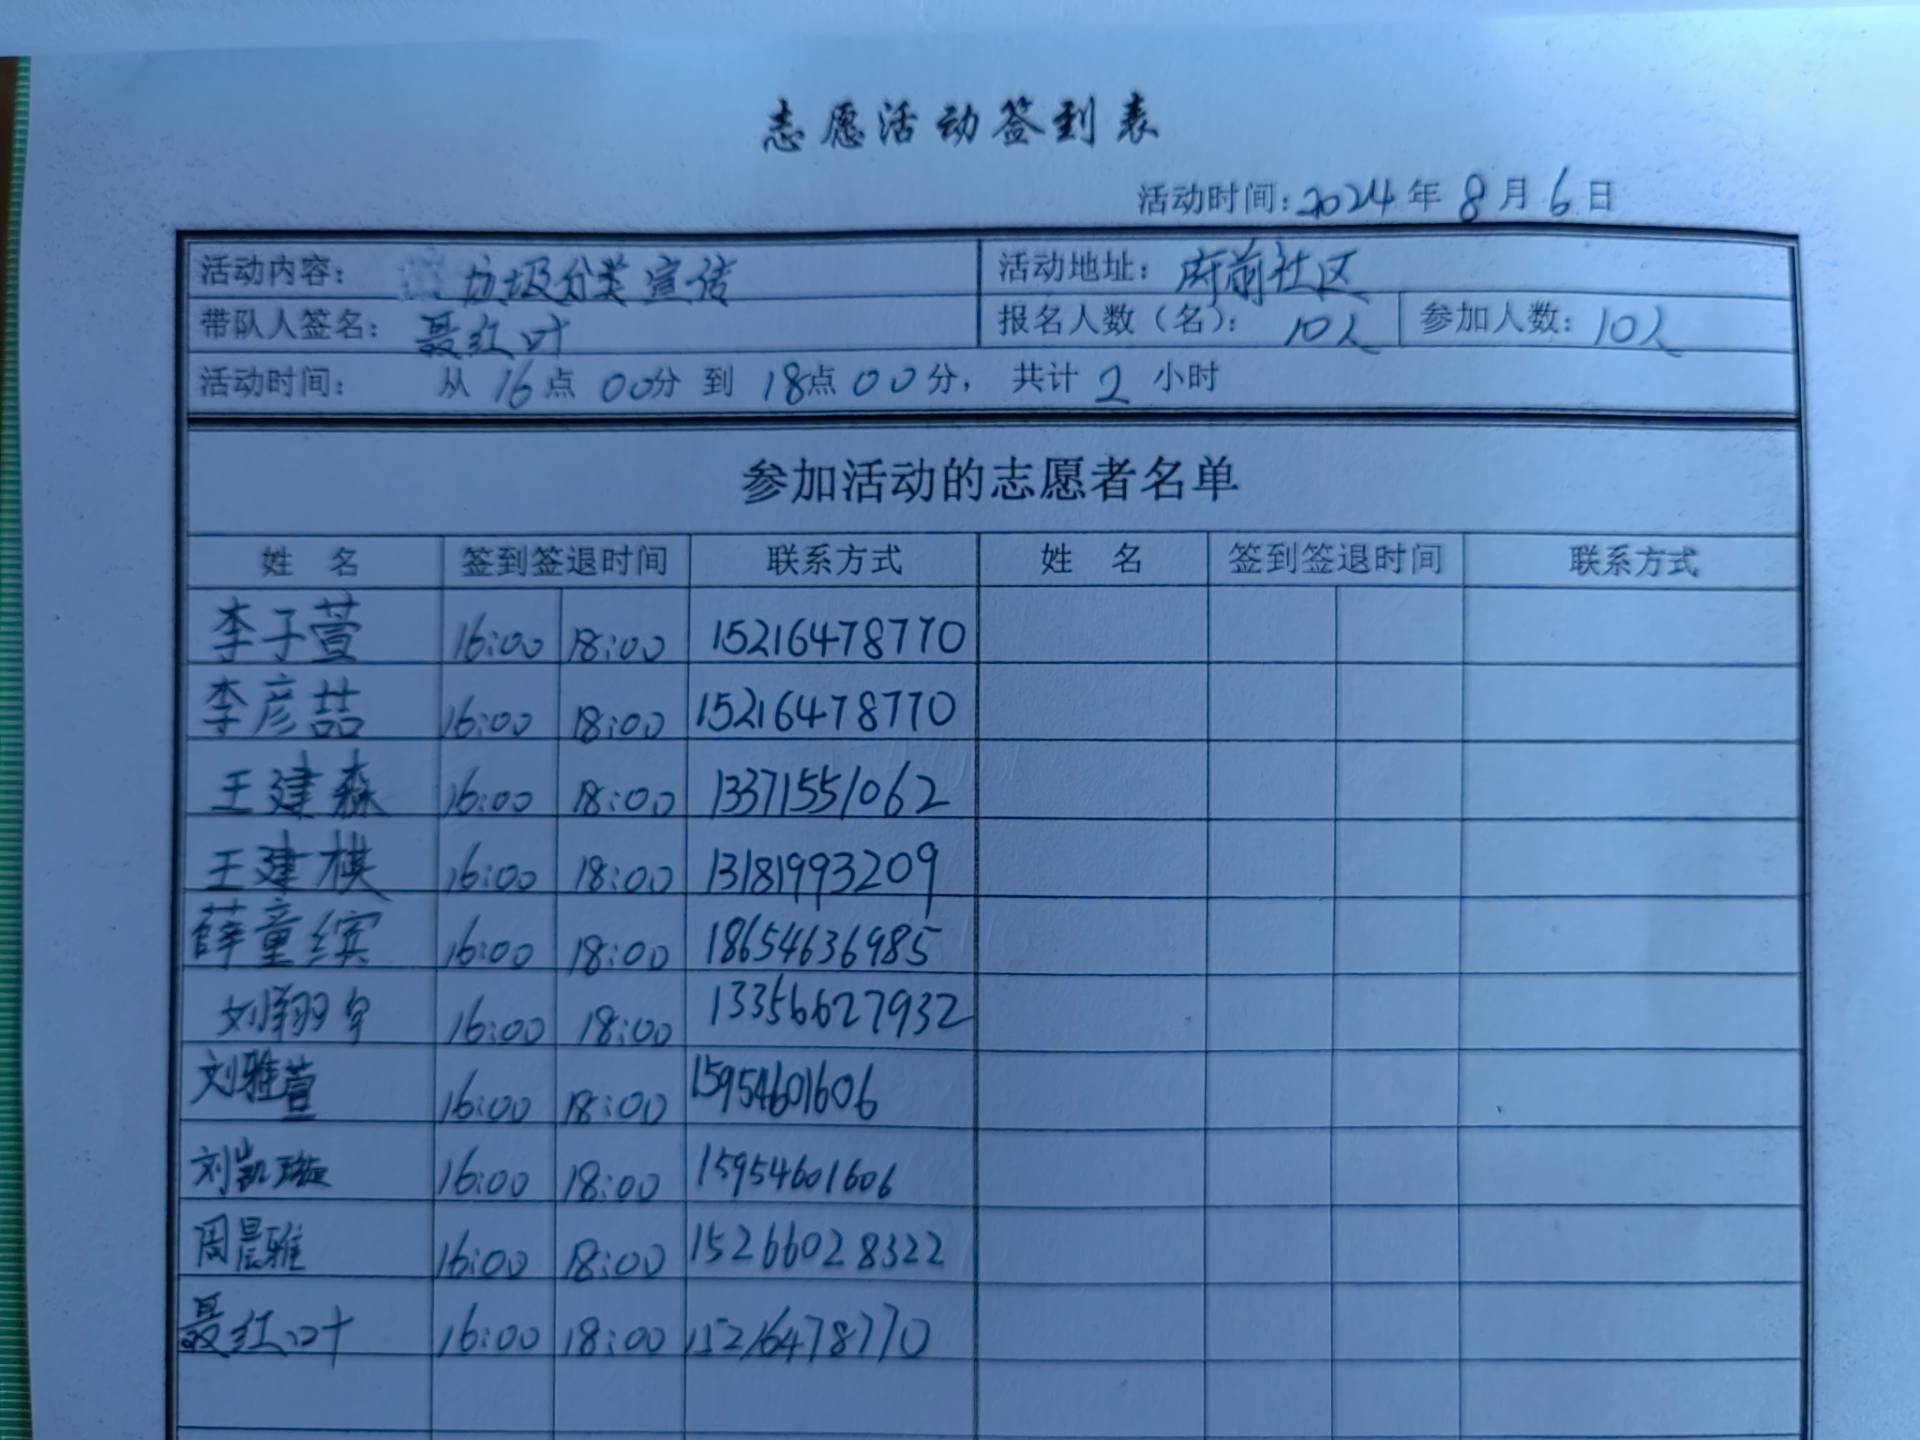 志愿活动签到表
活动时间:2024年8月6日
活动内容: 垃圾分类宣传 活动地址: 府前社区
带队人签名: 聂红叶 报名人数(名): 10人 参加人数: 10人
活动时间: 从16点00分到18点00分, 共计2小时
参加活动的志愿者名单
姓 名 签到签退时间 联系方式 姓 名 签到签退时间 联系方式
李子萱 16:00 18:00 15216478770
李彦喆 16:00 18:00 15216478770
王建森 16:00 18:00 13371551062
王建棋 16:00 18:00 13181993209
薛童缤 16:00 18:00 18654636985
刘翔宇 16:00 18:00 13356627932
刘雅萱 16:00 18:00 15954601606
刘凯璇 16:00 18:00 15954601606
周晨雅 16:00 18:00 15266028322
聂红叶 16:00 18:00 15216478770